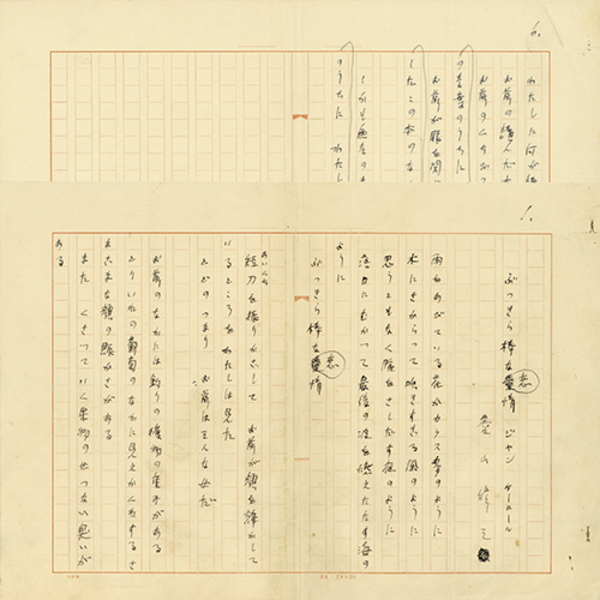 6.
わたしに何が
お前の読んだ
お前のくち
のうちに
お前が眼を閉
したこの本のな
しかも
のうちに わたし
1.
ぶっきら棒な恋情 ジャン ケーロール
山修
雨をあびている花がカラス麦のように
木にさからって吹きすさる風のように
思うともなく腕をさしだす夜のように
落日にむかって最後の波を燃えたたす海の
ように
ぶっきら棒な恋情
あいくち
短刀を振りかざして お前が顔を輝かして
いるところを わたしは見た
とどのつまり お前はどんな女だ
お前のなかには釣りの獲物の重みがある
とりいれの葡萄のなかに見えかくれするさ
まざまな顔の賑かさがある
また くさっていく果物のせつない臭いが
ある